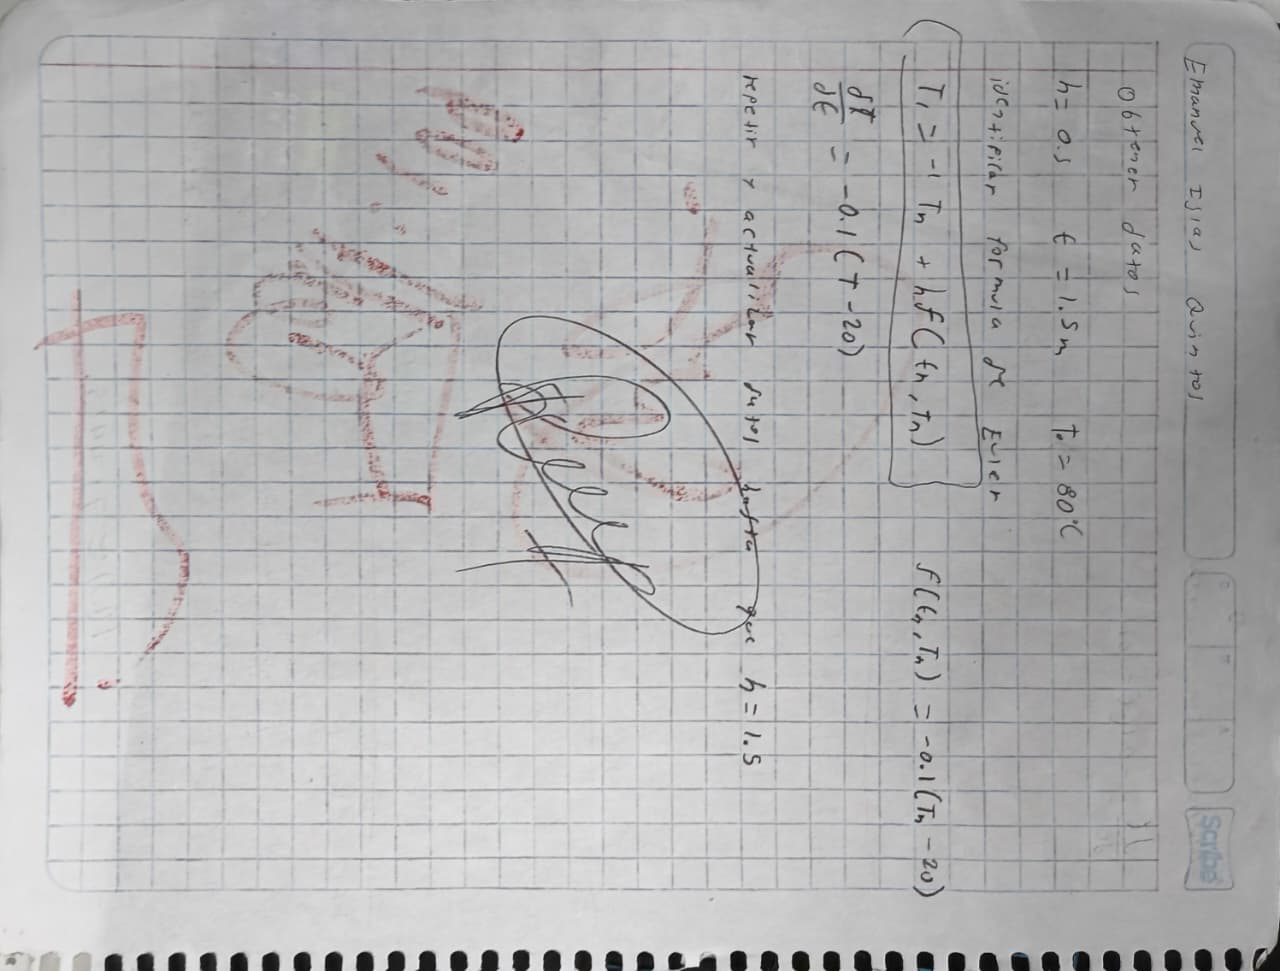 Emanuel Isias Quintos
Scribe
Obtener datos
h= 0.5 t = 1.5m T₀ = 80°C
identificar formula de Euler
T₁ = -1 Tn + hf(tn, Tn) f(tn, Tn) = -0.1(Tn - 20)
dT/dt = -0.1(T - 20)
repetir y actualizar datos hasta que h = 1.5